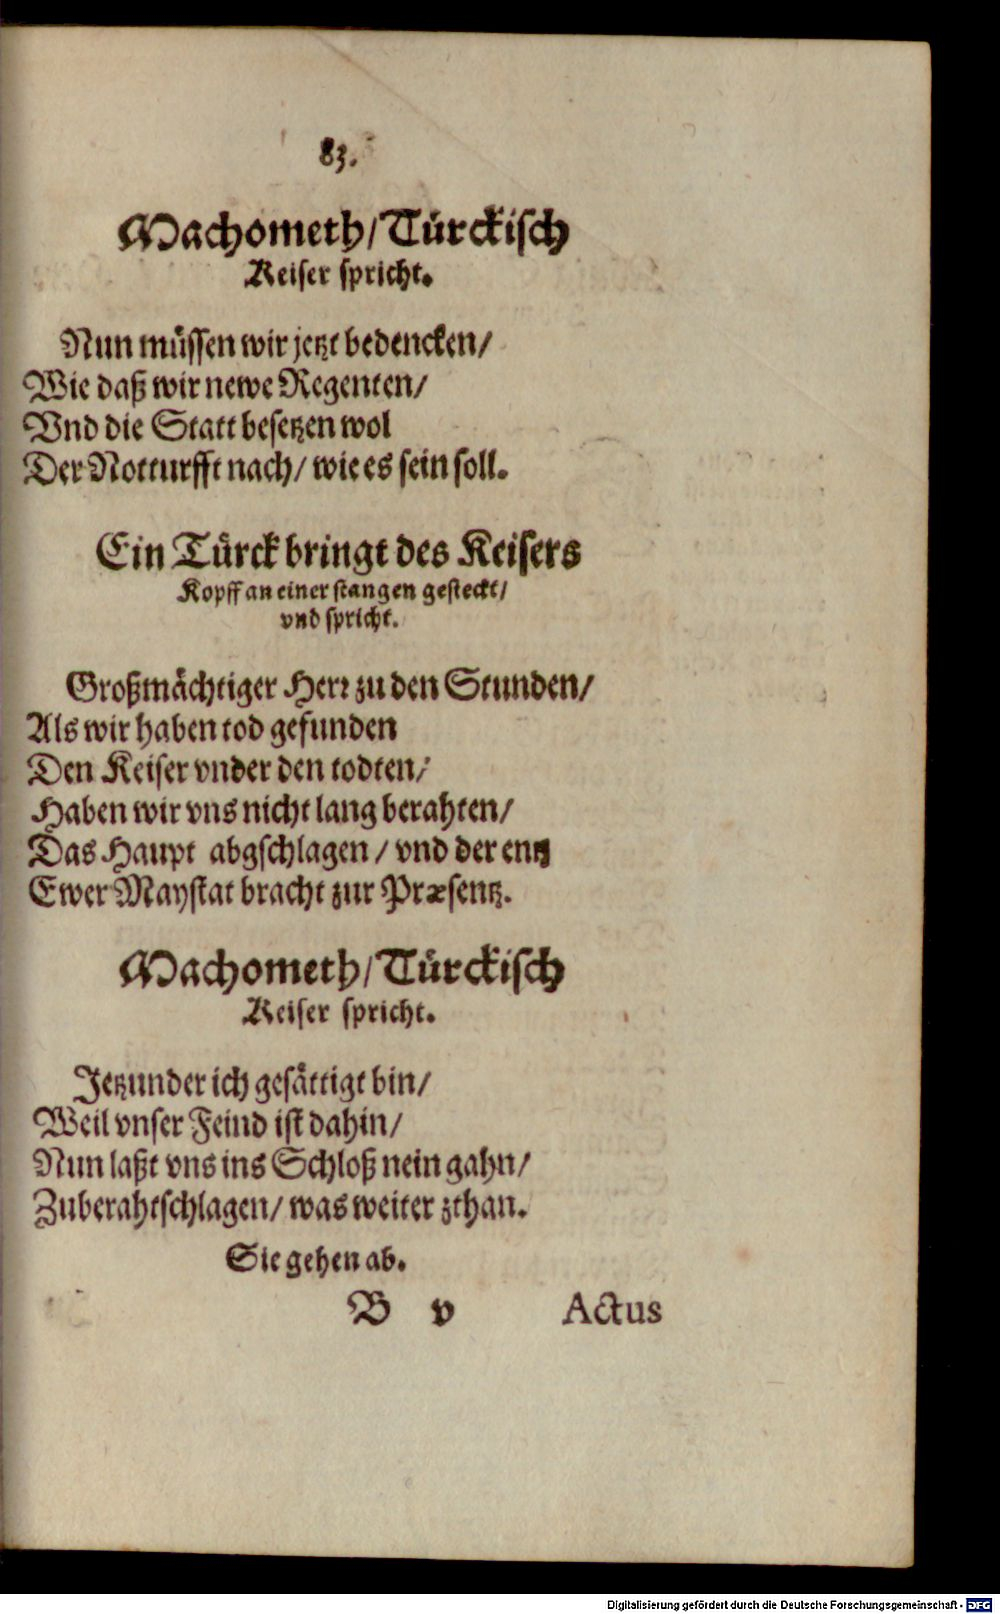 83.
Machometh/Türckisch
Keiser spricht.
Nun müssen wir jetzt bedencken/
Wie daß wir newe Regenten/
Vnd die Statt besetzen wol
Der Notturfft nach/ wie es sein soll.
Ein Türck bringt des Keisers
Kopff an einer stangen gesteckt/
vnd spricht.
Großmächtiger Herr zu den Stunden/
Als wir haben tod gefunden
Den Keiser vnder den todten/
Haben wir vns nicht lang berahten/
Das Haupt abgschlagen/ vnd der entz
Ewer Maystat bracht zur Præsentz.
Machometh/Türckisch
Keiser spricht.
Jetzunder ich gesättigt bin/
Weil vnser Feind ist dahin/
Nun laßt vns ins Schloß nein gahn/
Zuberahtschlagen/ was weiter zthan.
Sie gehen ab.
B v Actus
Digitalisierung gefördert durch die Deutsche Forschungsgemeinschaft - DFG